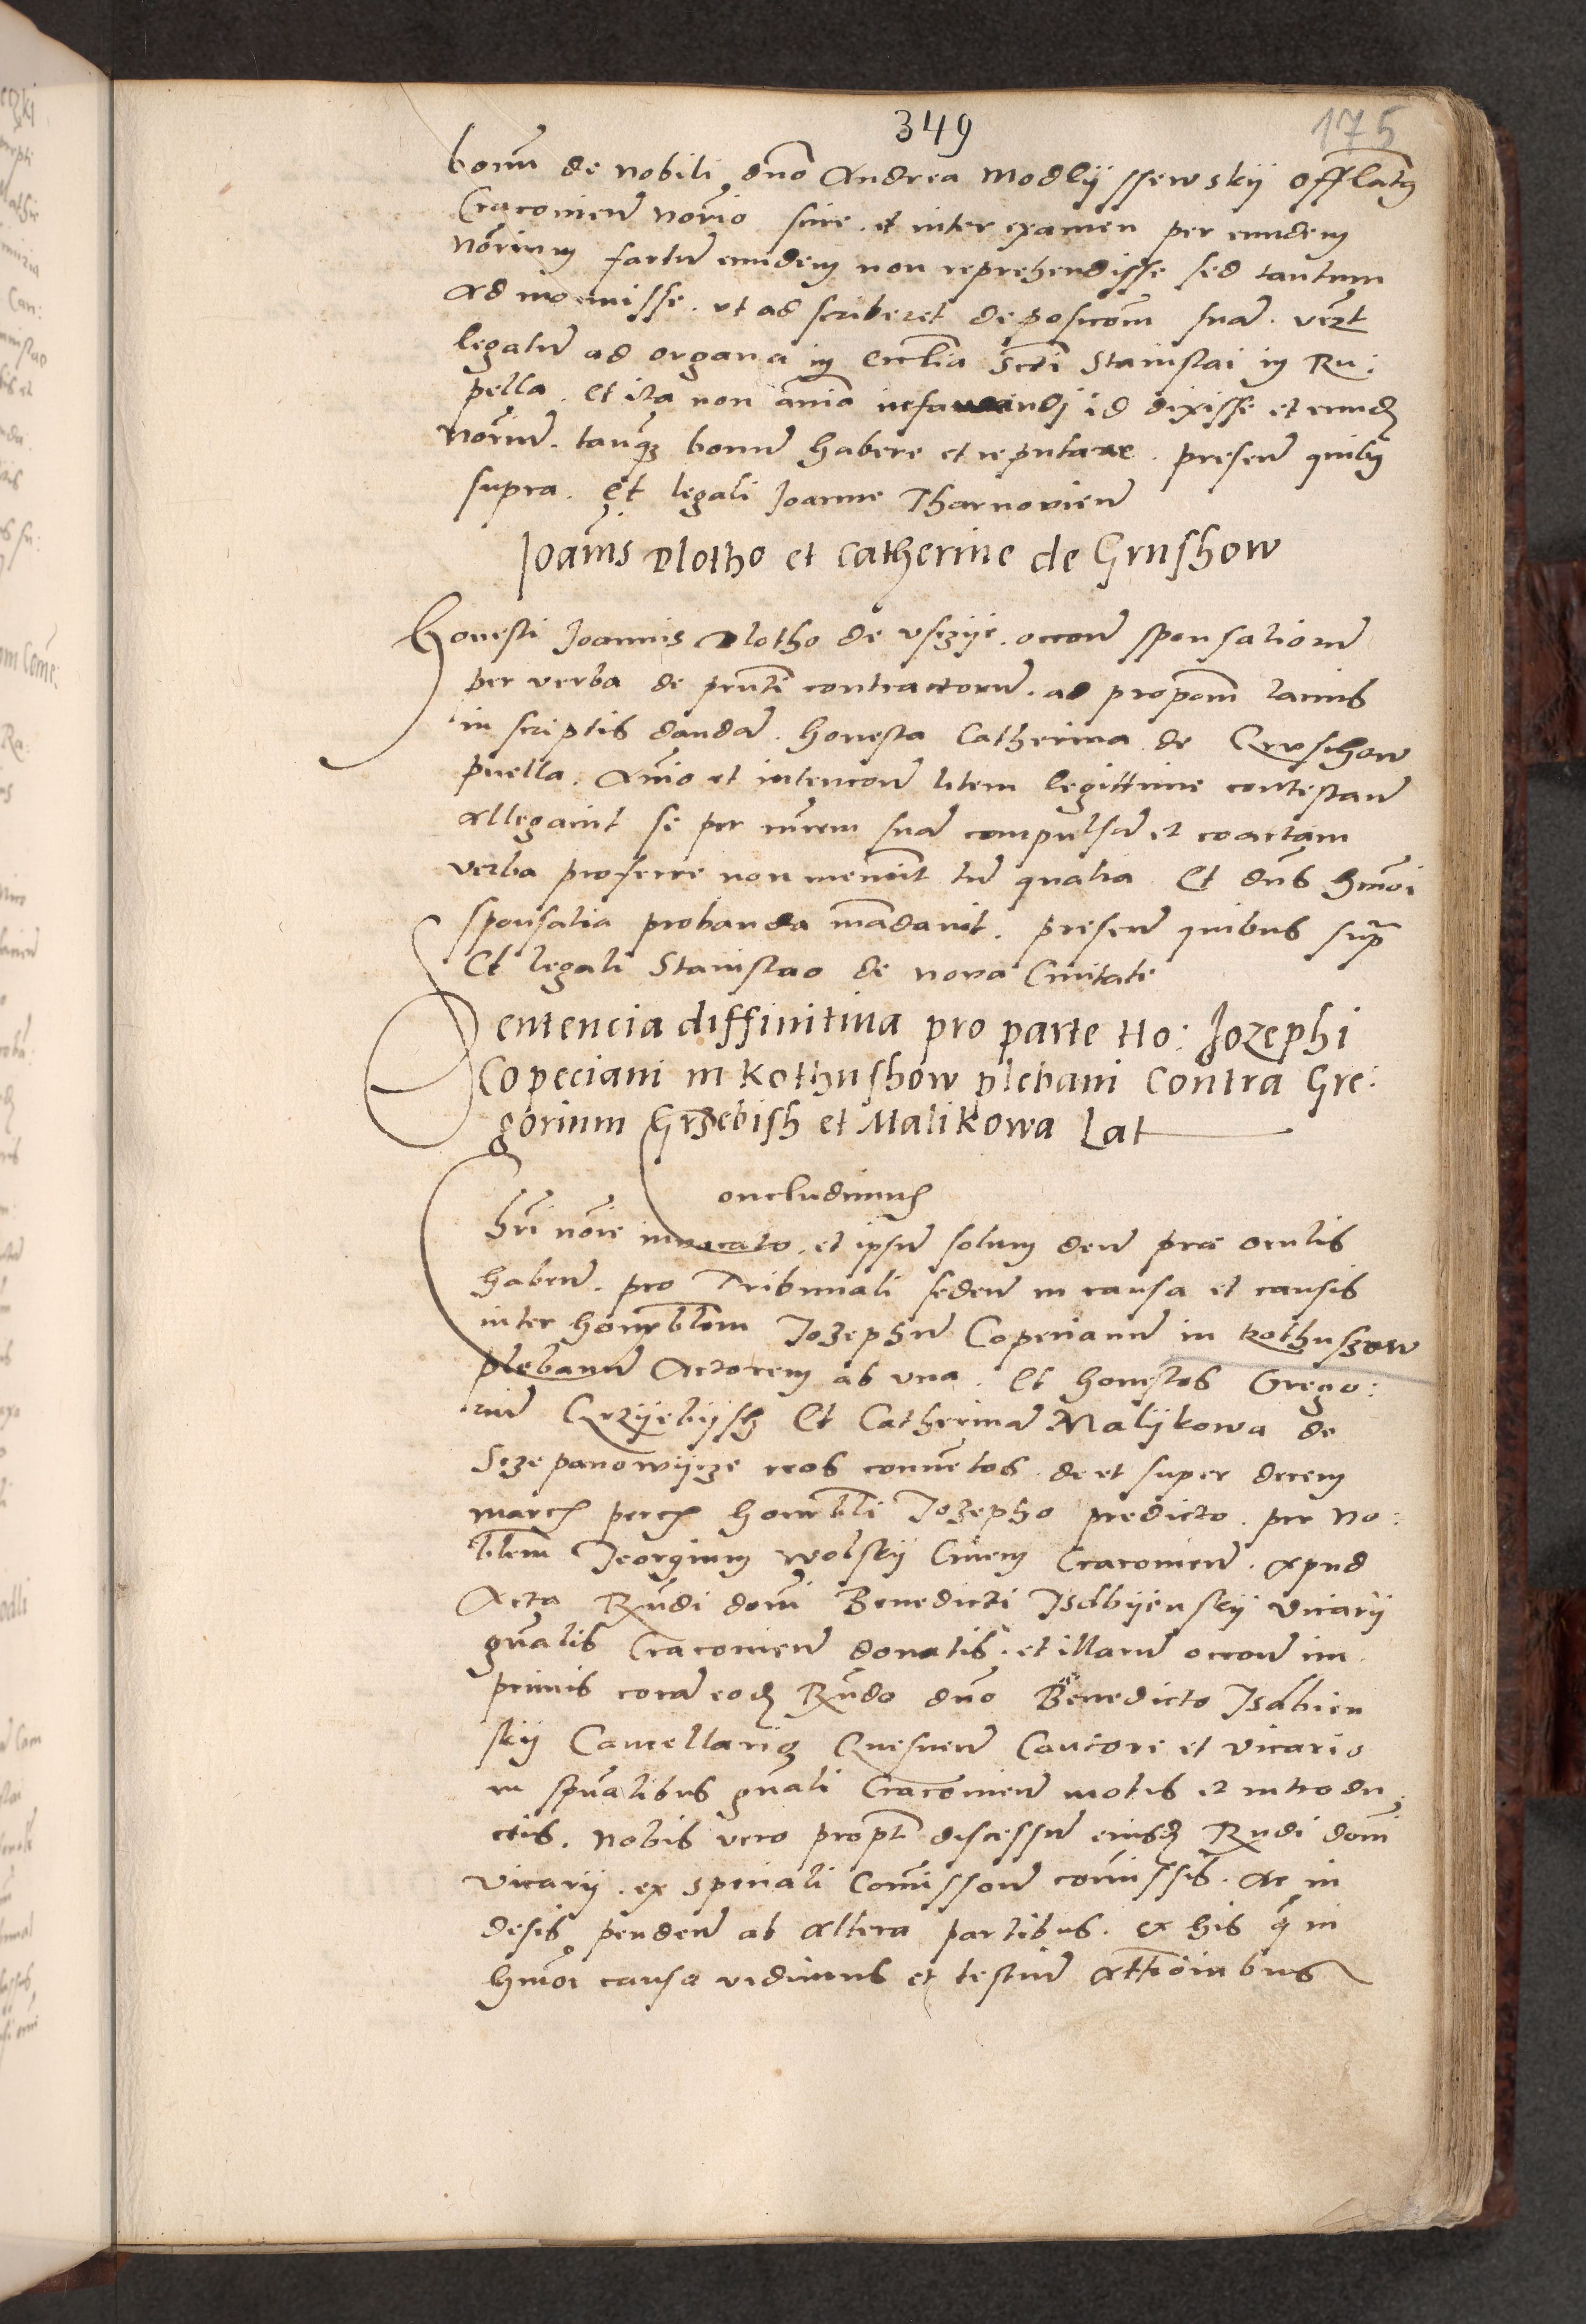 349
175
bonu de nobili dno Andrea Modlyssewsky offlatg
Cracovien norio scire et inter examen per eundem
norium factu eundem non reprehendisse sed tantum
Admonuisse. ut ad scriberet deposicom sua.
legatu ad organa in Ecclia Scti Stanislai in Ru:
pella. Et ita non animo id dixisse et eund
noriu. tanq bonu habere et reputare. presen quibus
supra. Et legali Joanne Tharnovien
Joanis Plotho et Catherine de Grushow
Honesti Joannis Plotho de usczye. occone sponsalioru
per verba de pnti contractoru. ad propom lacius
in scriptis danda. honesta Catherina de Gruschow
puella. Animo et intencone litem legittime contestan
allegavit se per mrem sua compulsa et coactam
verba proferre non meminit tn qualia Et dns hmoi
sponsalia probanda mandavit. presen quibus supra
Et legali Stanislao de nova Civitate
Sentencia diffinitiva pro parte Ho: Jozephi
Copeciani in Kothushow plebani contra Gre:
gorium Grzebish et Malikowa Lat
oncludimus
Chri noie invocato. et ipsu solum deu prae oculis
haben. pro Tribunali seden in causa et causis
inter honorblem Jozephu Copecianu in Kothuszow
plebanu Actorem ab una. Et honestos Grego:
riu Grzyebyssh Et Catherina Malykowa de
Sczepanowycze reos conventos. de et super decem
marcs honorbli Jozepho predicto. per no:
bilem Georgium Wolsky Civem Cracovien. apud
Acta Rndi domi Benedicti Isdbyensky vicarii
gnalis Cracovien donatis. et illaru occone im
primis cora eod Rndo dno Benedicto Isdbien
sky Cancellario Gnesnen Cantore et vicario
in spualibus gnali Cracovien motis et introdu:
ctis. nobis vero propt discessu eiusd Rndi domi
vicarii. ex speciali Comissone comissis. Ac in
desis penden ab altera partibus. ex his q in
hmoi causa vidimus et testiu Attoibus